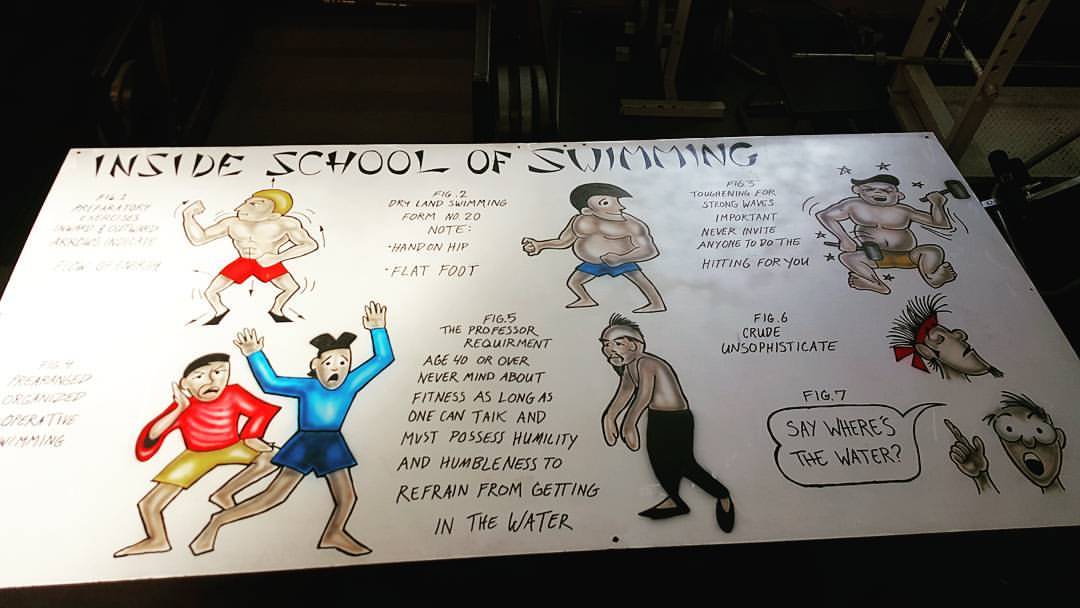 INSIDE SCHOOL OF SWIMMING
FIG.1
PREPARATORY
EXERCISES
INWARD & OUTWARD
ARROWS INDICATE
FLOW OF ENERGY
FIG.2
DRY LAND SWIMMING
FORM NO. 20
NOTE:
• HAND ON HIP
• FLAT FOOT
FIG.3
TOUGHENING FOR
STRONG WAVES
IMPORTANT
NEVER INVITE
ANYONE TO DO THE
HITTING FOR YOU
FIG.4
PREARANGED
ORGANIZED
OPERATIVE
WIMMING
FIG.5
THE PROFESSOR
REQUIRMENT
AGE 40 OR OVER
NEVER MIND ABOUT
FITNESS AS LONG AS
ONE CAN TAIK AND
MUST POSSESS HUMILITY
AND HUMBLENESS TO
REFRAIN FROM GETTING
IN THE WATER
FIG.6
CRUDE
UNSOPHISTICATE
FIG.7
SAY WHERE'S
THE WATER?